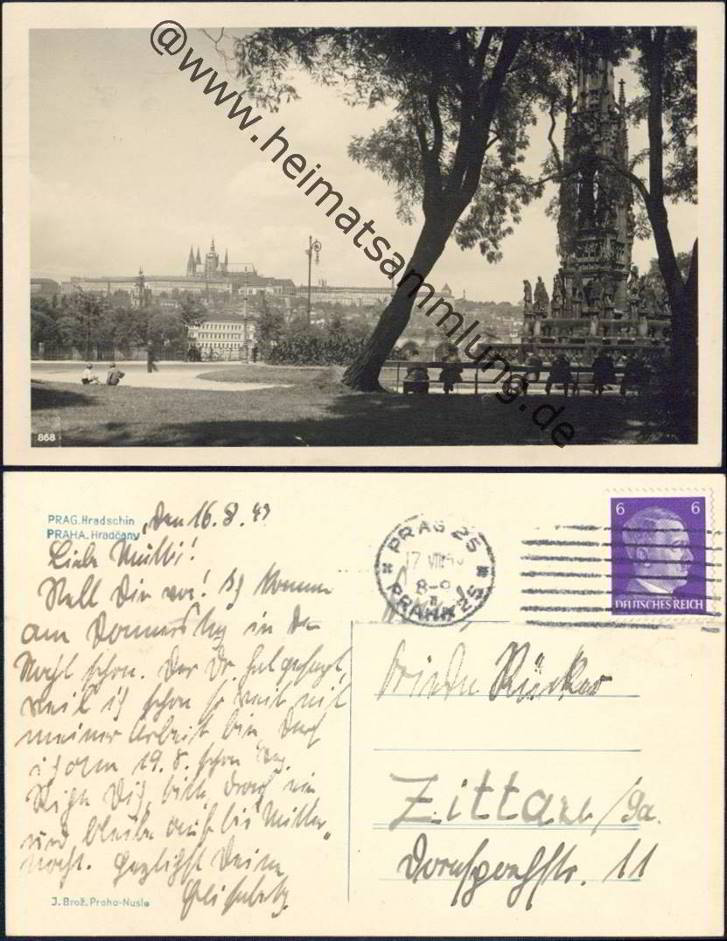 @www.heimatsammlung.de
868
PRAG. Hradschin
PRAHA. Hradčany
Den 16.8.43
Liebe Mutti!
Stell Dir vor! Ich komme
am Donnerstag in der
Nacht schon. Der Dr. hat gesagt,
weil ich schon so weit mit
meiner Arbeit bin, daß
ich am 19.8. schon
Dich, bitte
und bleibe auf bis Mitter
nacht. Herzlichst Deine
PRAG 25
17 VIII
8-9
PRAHA 25
6 6
DEUTSCHES REICH
Rücker
Zittau/Sa.
11
J. Brož. Praha-Nusle